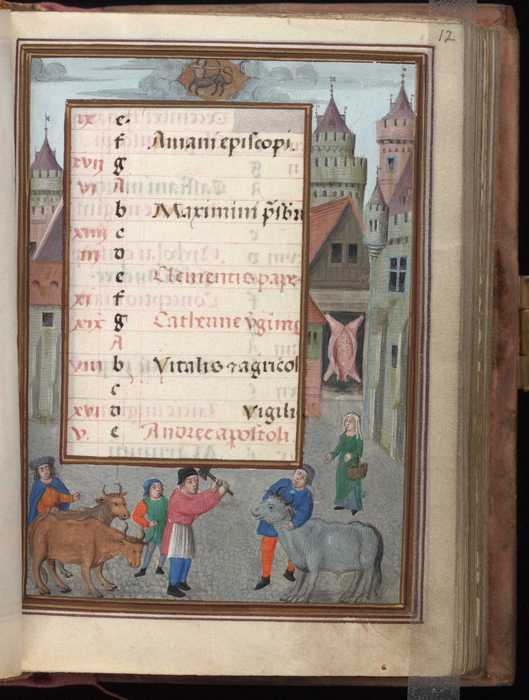 12
ix e
f Aniani episcopi.
xvii g
vi A
b Maximini
xiiii c
iii d
e Clementis pape
xi f
xix g Catherine
A
viii b Vitalis ⁊ agricol
c
xvi d Vigili
v. e Andree apostoli